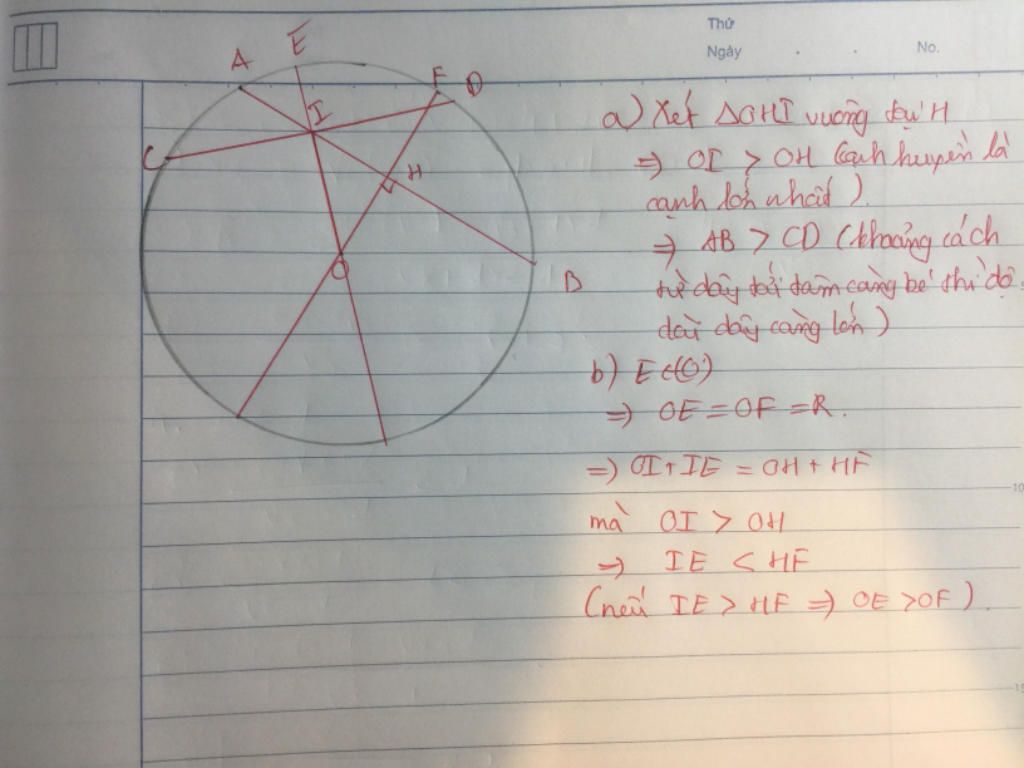 Thứ
Ngày . . No.
A
E
F
D
I
C
H
O
B
a) Xét ΔOHI vuông tại H
=> OI > OH (cạnh huyền là
cạnh lớn nhất).
=> AB > CD (khoảng cách
từ dây tới tâm càng bé thì độ
dài dây càng lớn)
b) E ∈ (O)
=> OE = OF = R.
=> OI + IE = OH + HF
10
mà OI > OH
=> IE < HF
(nếu IE > HF => OE > OF).
15